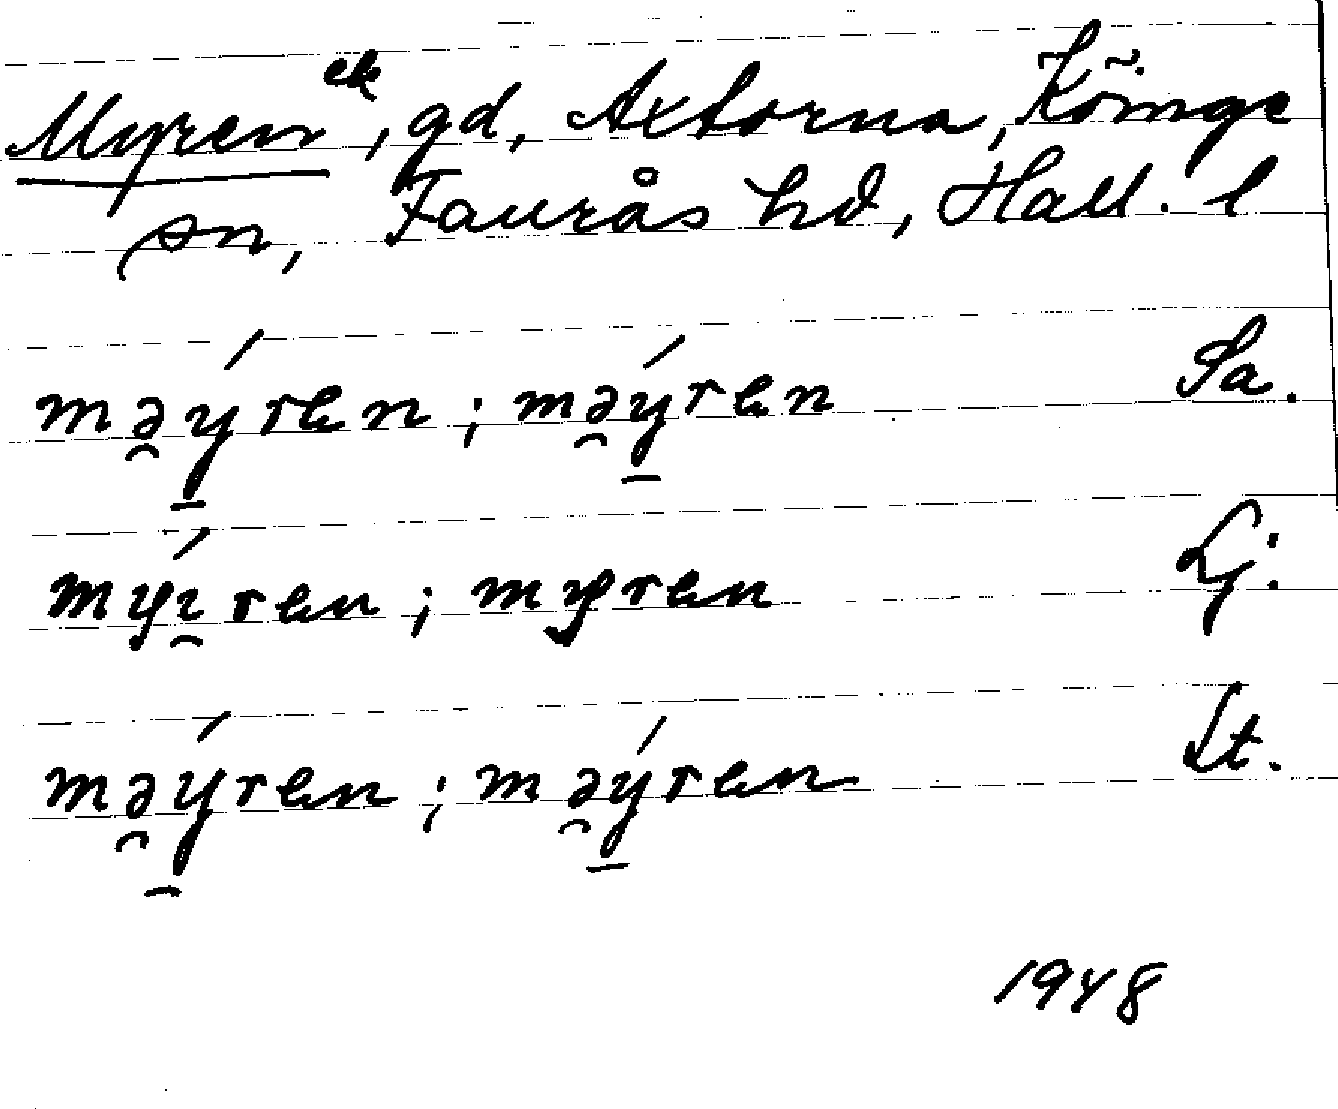 Myren ek, gd, Axtorna, Köinge
sn, Faurås hd, Hall. l
mə̯ýren; mə̯ýren Sa.
myɪ̯́ren; myren Lj.
mə̯ýren; mə̯ýren St.
1948